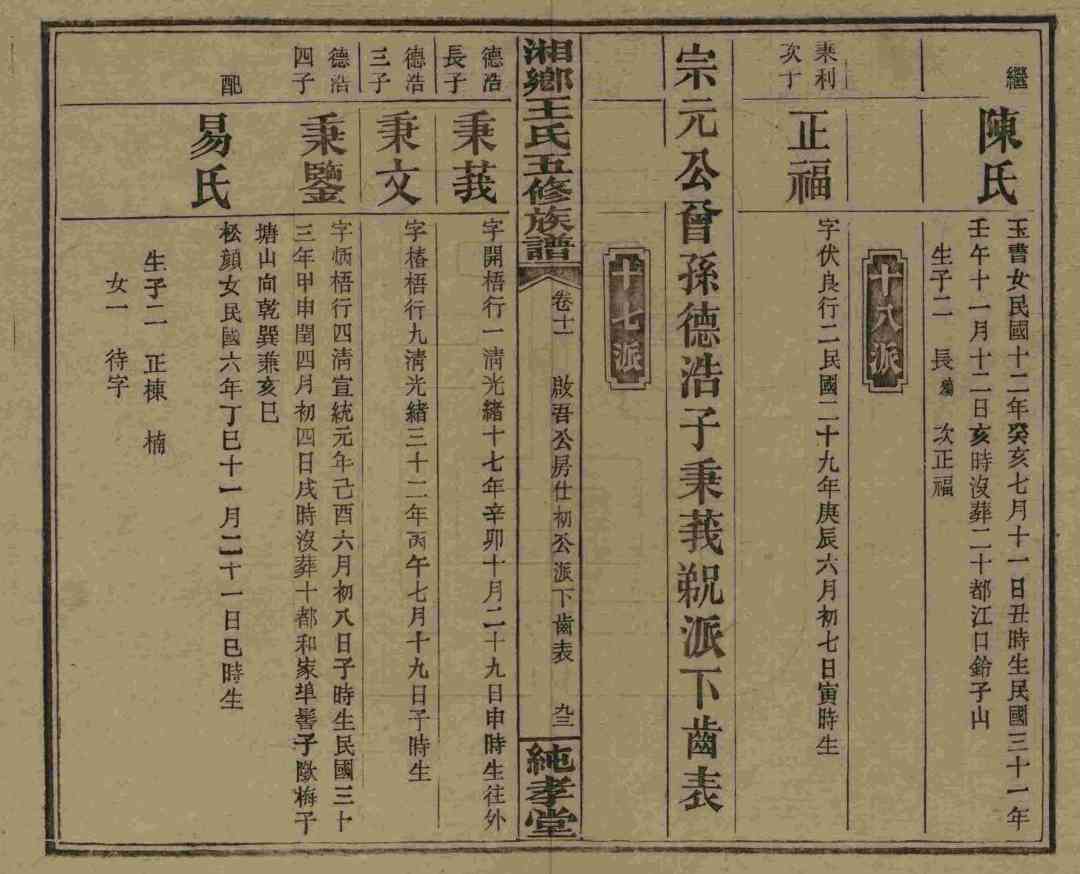 繼
陳氏
玉書女民國十二年癸亥七月十一日丑時生民國三十一年
壬午十一月十二日亥時沒葬二十都江口鈴子山
生子二 長 次正福
十八派
秉利
次子
正福
字伏良行二民國二十九年庚辰六月初七日寅時生
宗元公曾孫德浩子秉莪觬派下齒表
十七派
湘鄉王氏五修族譜
卷十一 啟吾公房仕初公派下齒表 九三
純孝堂
德浩
長子
秉莪
字開梧行一清光緒十七年辛卯十月二十九日申時生往外
德浩
三子
秉文
字椿梧行九清光緒三十二年丙午七月十九日子時生
德浩
四子
秉鑒
字炳梧行四清宣統元年己酉六月初八日子時生民國三十
三年甲申閏四月初四日戌時沒葬十都和家埠髻子歐梅子
塘山向乾巽兼亥巳
配
易氏
松顏女民國六年丁巳十一月二十一日巳時生
生子二 正棟 楠
女一 待字